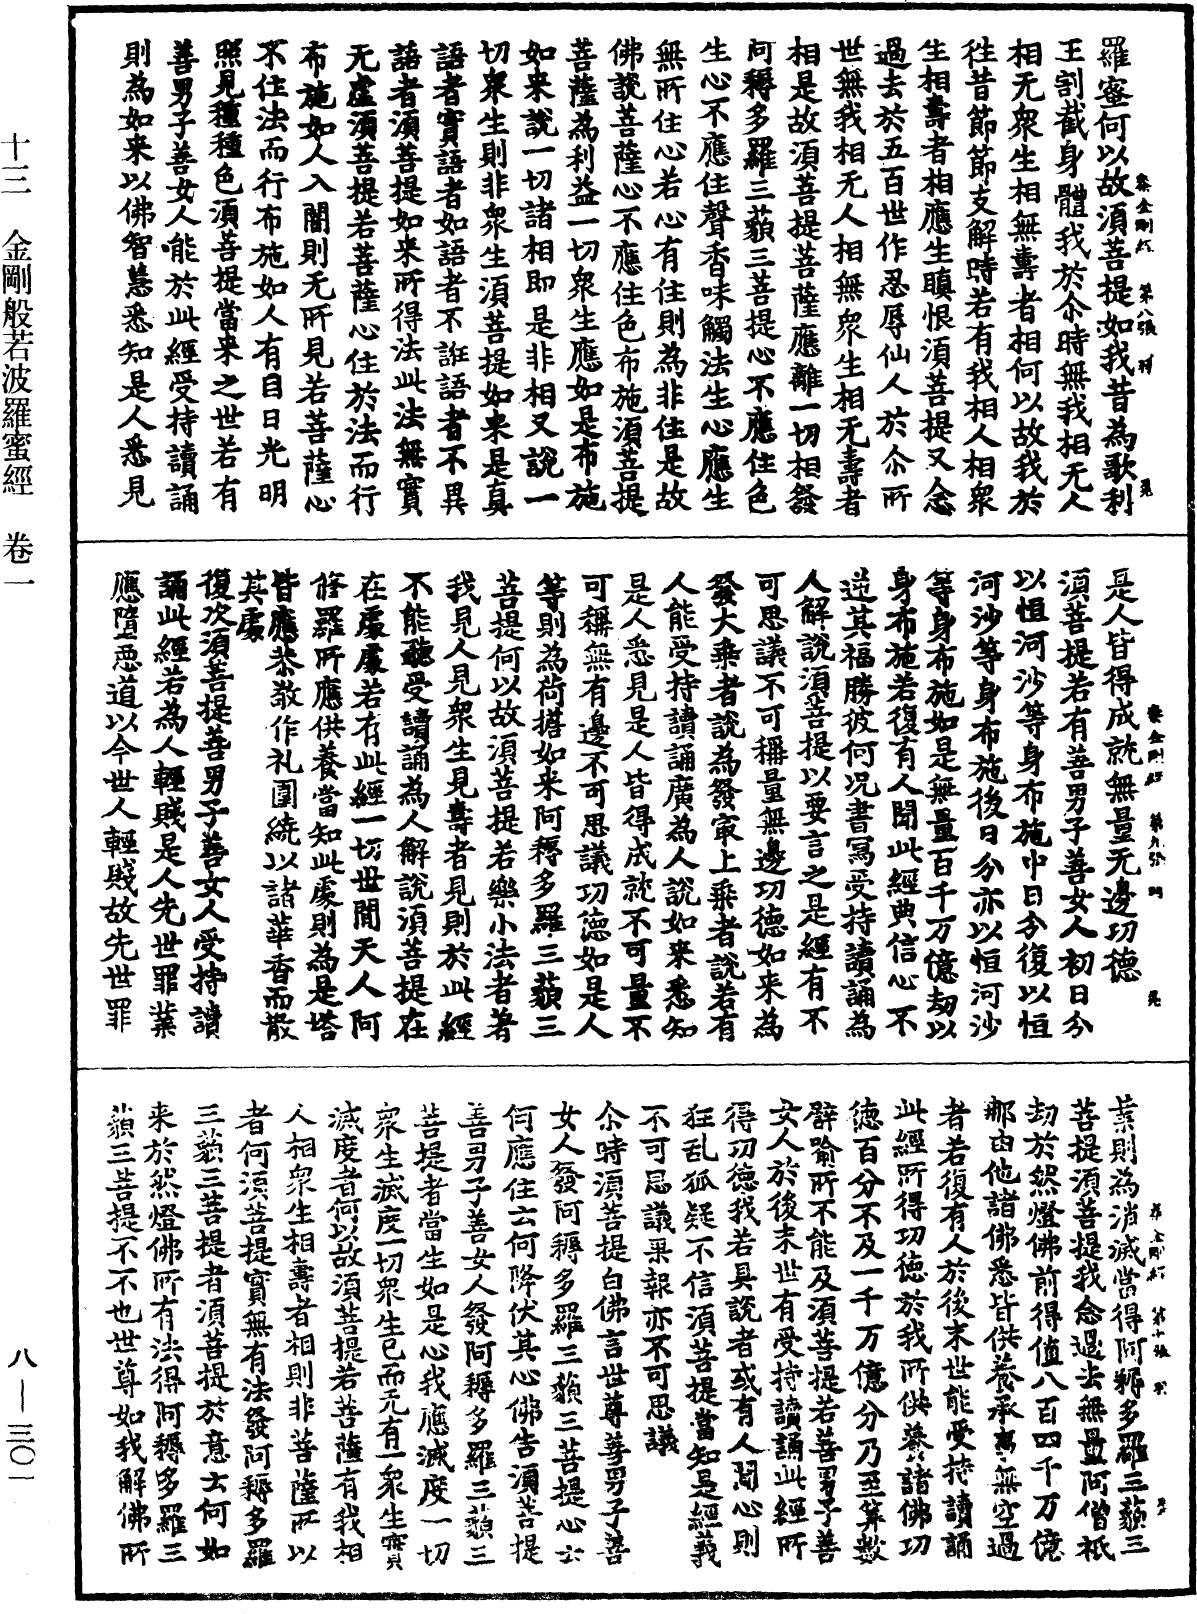 羅蜜何以故湏菩提如我昔為歌利
王割截身體我於尒時無我相无人
相无衆生相無壽者相何以故我於
徃昔節節支解時若有我相人相衆
生相壽者相應生瞋恨湏菩提又念
過去於五百世作忍辱仙人於尒所
世無我相无人相無衆生相无壽者
相是故湏菩提菩薩應離一切相發
阿耨多羅三藐三菩提心不應住色
生心不應住聲香味觸法生心應生
無所住心若心有住則為非住是故
佛說菩薩心不應住色布施湏菩提
菩薩為利益一切衆生應如是布施
如来說一切諸相即是非相又說一
切衆生則非衆生湏菩提如来是真
語者實語者如語者不誑語者不異
語者湏菩提如来所得法此法無實
无虛湏菩提若菩薩心住於法而行
布施如人入闇則无所見若菩薩心
不住法而行布施如人有目日光明
照見種種色湏菩提當来之世若有
善男子善女人能於此經受持讀誦
則為如来以佛智慧悉知是人悉見
金剛經 第八張
是人皆得成就無量无邊功德
湏菩提若有善男子善女人初日分
以恒河沙等身布施中日分復以恒
河沙等身布施後日分亦以恒河沙
等身布施如是無量百千万億劫以
身布施若復有人聞此經典信心不
逆其福勝彼何况書寫受持讀誦為
人解說湏菩提以要言之是經有不
可思議不可稱量無邊功德如来為
發大乗者說為發㝡上乗者說若有
人能受持讀誦廣為人說如来悉知
是人悉見是人皆得成就不可量不
可稱無有邊不可思議功德如是人
等則為荷擔如来阿耨多羅三藐三
菩提何以故湏菩提若樂小法者著
我見人見衆生見壽者見則於此經
不能聽受讀誦為人解說湏菩提在
在處處若有此經一切世間天人阿
修羅所應供養當知此處則為是塔
皆應恭敬作礼圍繞以諸華香而散
其處
復次湏菩提善男子善女人受持讀
誦此經若為人輕賤是人先世罪業
應墮惡道以今世人輕賤故先世罪
金剛經 第九張
業則為消滅當得阿耨多羅三藐三
菩提湏菩提我念過去無量阿僧祇
劫於然燈佛前得值八百四千万億
那由他諸佛悉皆供養承事無空過
者若復有人於後末世能受持讀誦
此經所得功德於我所供養諸佛功
德百分不及一千万億分乃至筭數
譬喻所不能及湏菩提若善男子善
女人於後末世有受持讀誦此經所
得功德我若具說者或有人聞心則
狂乱狐疑不信湏菩提當知是經義
不可思議果報亦不可思議
尒時湏菩提白佛言世尊善男子善
女人發阿耨多羅三藐三菩提心云
何應住云何降伏其心佛告湏菩提
善男子善女人發阿耨多羅三藐三
菩提者當生如是心我應滅度一切
衆生滅度一切衆生已而无有一衆生實
滅度者何以故湏菩提若菩薩有我相
人相衆生相壽者相則非菩薩所以
者何湏菩提實無有法發阿耨多羅
三藐三菩提者湏菩提於意云何如
来於然燈佛所有法得阿耨多羅三
藐三菩提不不也世尊如我解佛所
金剛經 第十張
十三 金剛般若波羅蜜經 卷一
八—三〇一